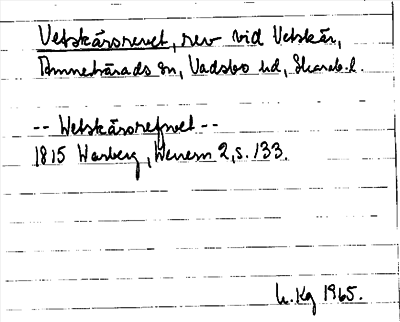 Vetskärsrevet, rev vid Vetskär,
Amnehärads sn, Vadsbo hd, Skarab. l.
-- Wetskärsrefvet --
1815 Warberg, Wenern 2, s. 133.
L. Kg 1965.